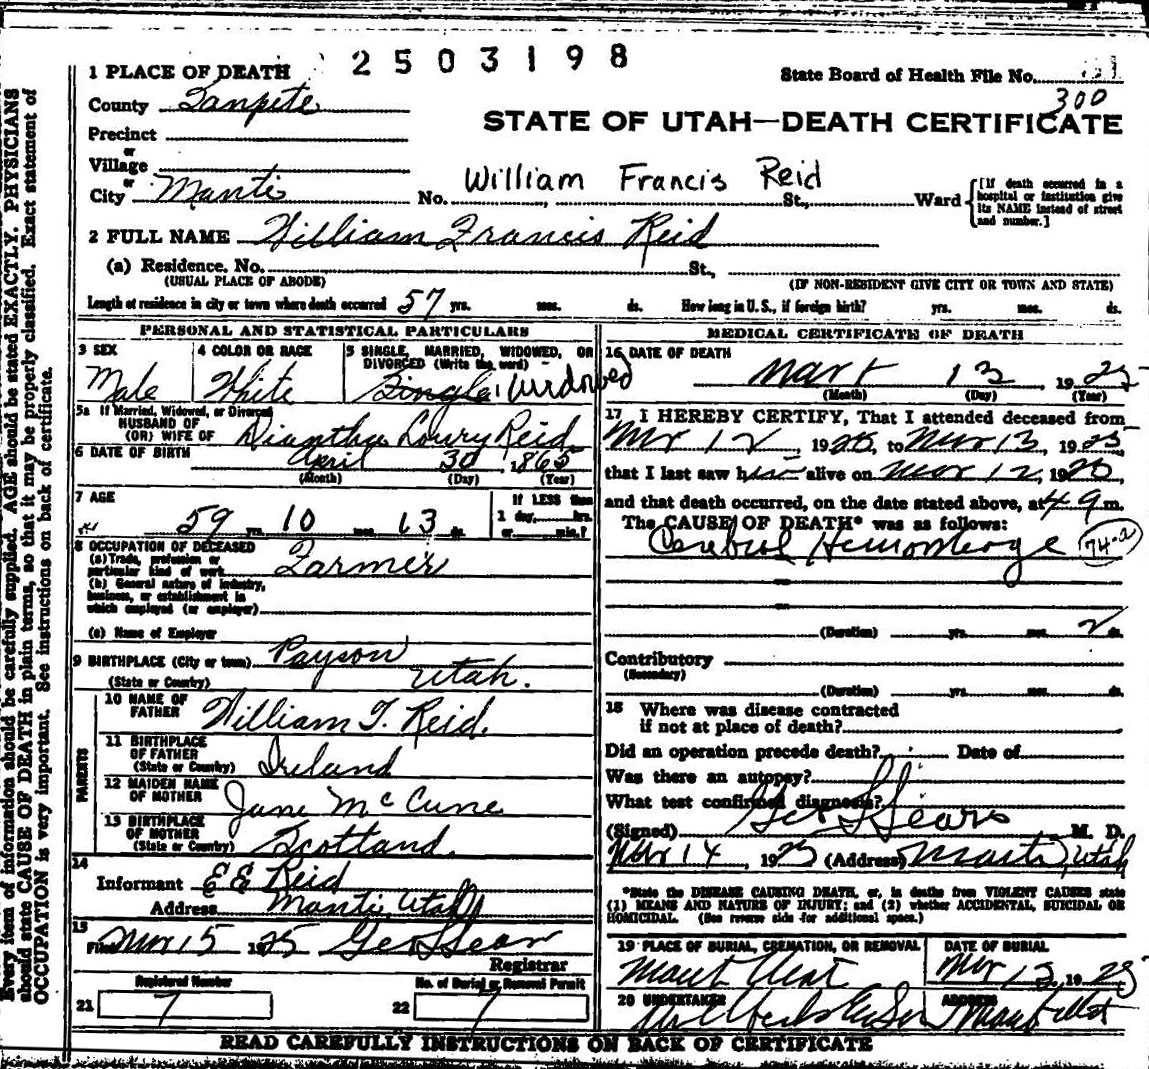 2503198
1 PLACE OF DEATH
State Board of Health File No.
300
County Sanpete
STATE OF UTAH—DEATH CERTIFICATE
Precinct
or
Village
or
City Manti No. William Francis Reid St., Ward
[If death occurred in a hospital or institution give its NAME instead of street and number.]
2 FULL NAME William Francis Reid
(a) Residence. No. St.,
(USUAL PLACE OF ABODE) (IF NON-RESIDENT GIVE CITY OR TOWN AND STATE)
Length of residence in city or town where death occurred 57 yrs. mos. ds. How long in U. S., if foreign birth? yrs. mos. ds.
PERSONAL AND STATISTICAL PARTICULARS
3 SEX 4 COLOR OR RACE 5 SINGLE, MARRIED, WIDOWED, OR DIVORCED (Write the word)
Male White Single Widowed
5a If Married, Widowed, or Divorced
HUSBAND OF
(OR) WIFE OF Diantha Lowry Reid
6 DATE OF BIRTH April 30 1865
(Month) (Day) (Year)
7 AGE If LESS than
59 yrs. 10 mos. 13 ds. 1 day, hrs.
or min.?
8 OCCUPATION OF DECEASED
(a) Trade, profession or particular kind of work Farmer
(b) General nature of industry, business, or establishment in which employed (or employer)
(c) Name of Employer
9 BIRTHPLACE (City or town) Payson
(State or Country) Utah.
PARENTS
10 NAME OF FATHER William T. Reid.
11 BIRTHPLACE OF FATHER (State or Country) Ireland
12 MAIDEN NAME OF MOTHER Jane McCune
13 BIRTHPLACE OF MOTHER (State or Country) Scotland.
14
Informant E E Reid
Address Manti, Utah
15
Filed Mar 15 1925 Geo L Sears
Registrar
Registered Number No. of Burial or Removal Permit
21 7 22 7
MEDICAL CERTIFICATE OF DEATH
16 DATE OF DEATH
March 13, 1925
(Month) (Day) (Year)
17 I HEREBY CERTIFY, That I attended deceased from
Mar 12, 1925, to Mar 13, 1925
that I last saw him alive on Mar 12, 1925,
and that death occurred, on the date stated above, at 4 9 m.
The CAUSE OF DEATH* was as follows:
Cerebral Hemorrhage 74-a
(Duration) yrs. mos. 2 ds.
Contributory
(Secondary)
(Duration) yrs. mos. ds.
18 Where was disease contracted
if not at place of death?
Did an operation precede death? Date of
Was there an autopsy?
What test confirmed diagnosis?
(Signed) Geo L Sears M. D.
Mar 14, 1925 (Address) Manti, Utah
*State the DISEASE CAUSING DEATH, or, in deaths from VIOLENT CAUSES state
(1) MEANS AND NATURE OF INJURY; and (2) whether ACCIDENTAL, SUICIDAL OR
HOMICIDAL. (See reverse side for additional space.)
19 PLACE OF BURIAL, CREMATION, OR REMOVAL DATE OF BURIAL
Manti Utah 1925
20 UNDERTAKER ADDRESS
READ CAREFULLY INSTRUCTIONS ON BACK OF CERTIFICATE
Every item of information should be carefully supplied. AGE should be stated EXACTLY. PHYSICIANS
should state CAUSE OF DEATH in plain terms, so that it may be properly classified. Exact statement of
OCCUPATION is very important. See instructions on back of certificate.